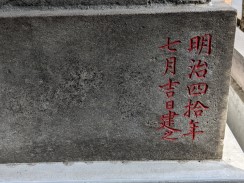 明治四拾年
七月吉日建之